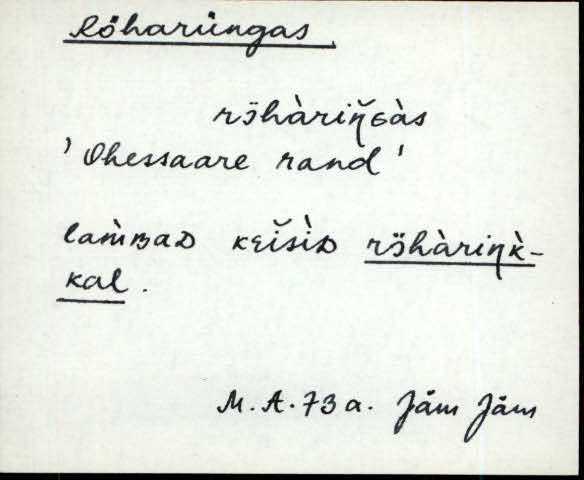 Röharüngas,
rö̆hàriŋ̆ɢàs
'Ohessaare rand'
lam̀ʙaᴅ ᴋɛĭsìᴅ rö̆hàriŋk̀-
kal.
M. A. 73 a. Jäm Jäm